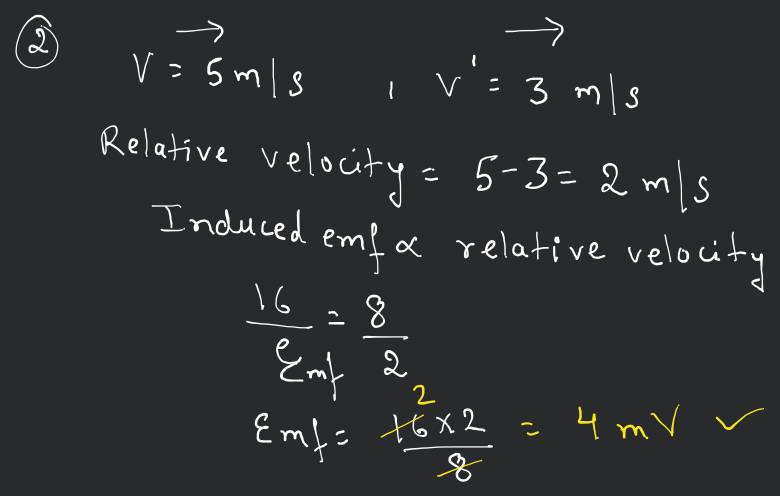 ② V = 5 m/s , V' = 3 m/s
Relative velocity = 5-3 = 2 m/s
Induced emf ∝ relative velocity
16/Emf = 8/2
Emf = 16×2/8 2 = 4 mV ✓